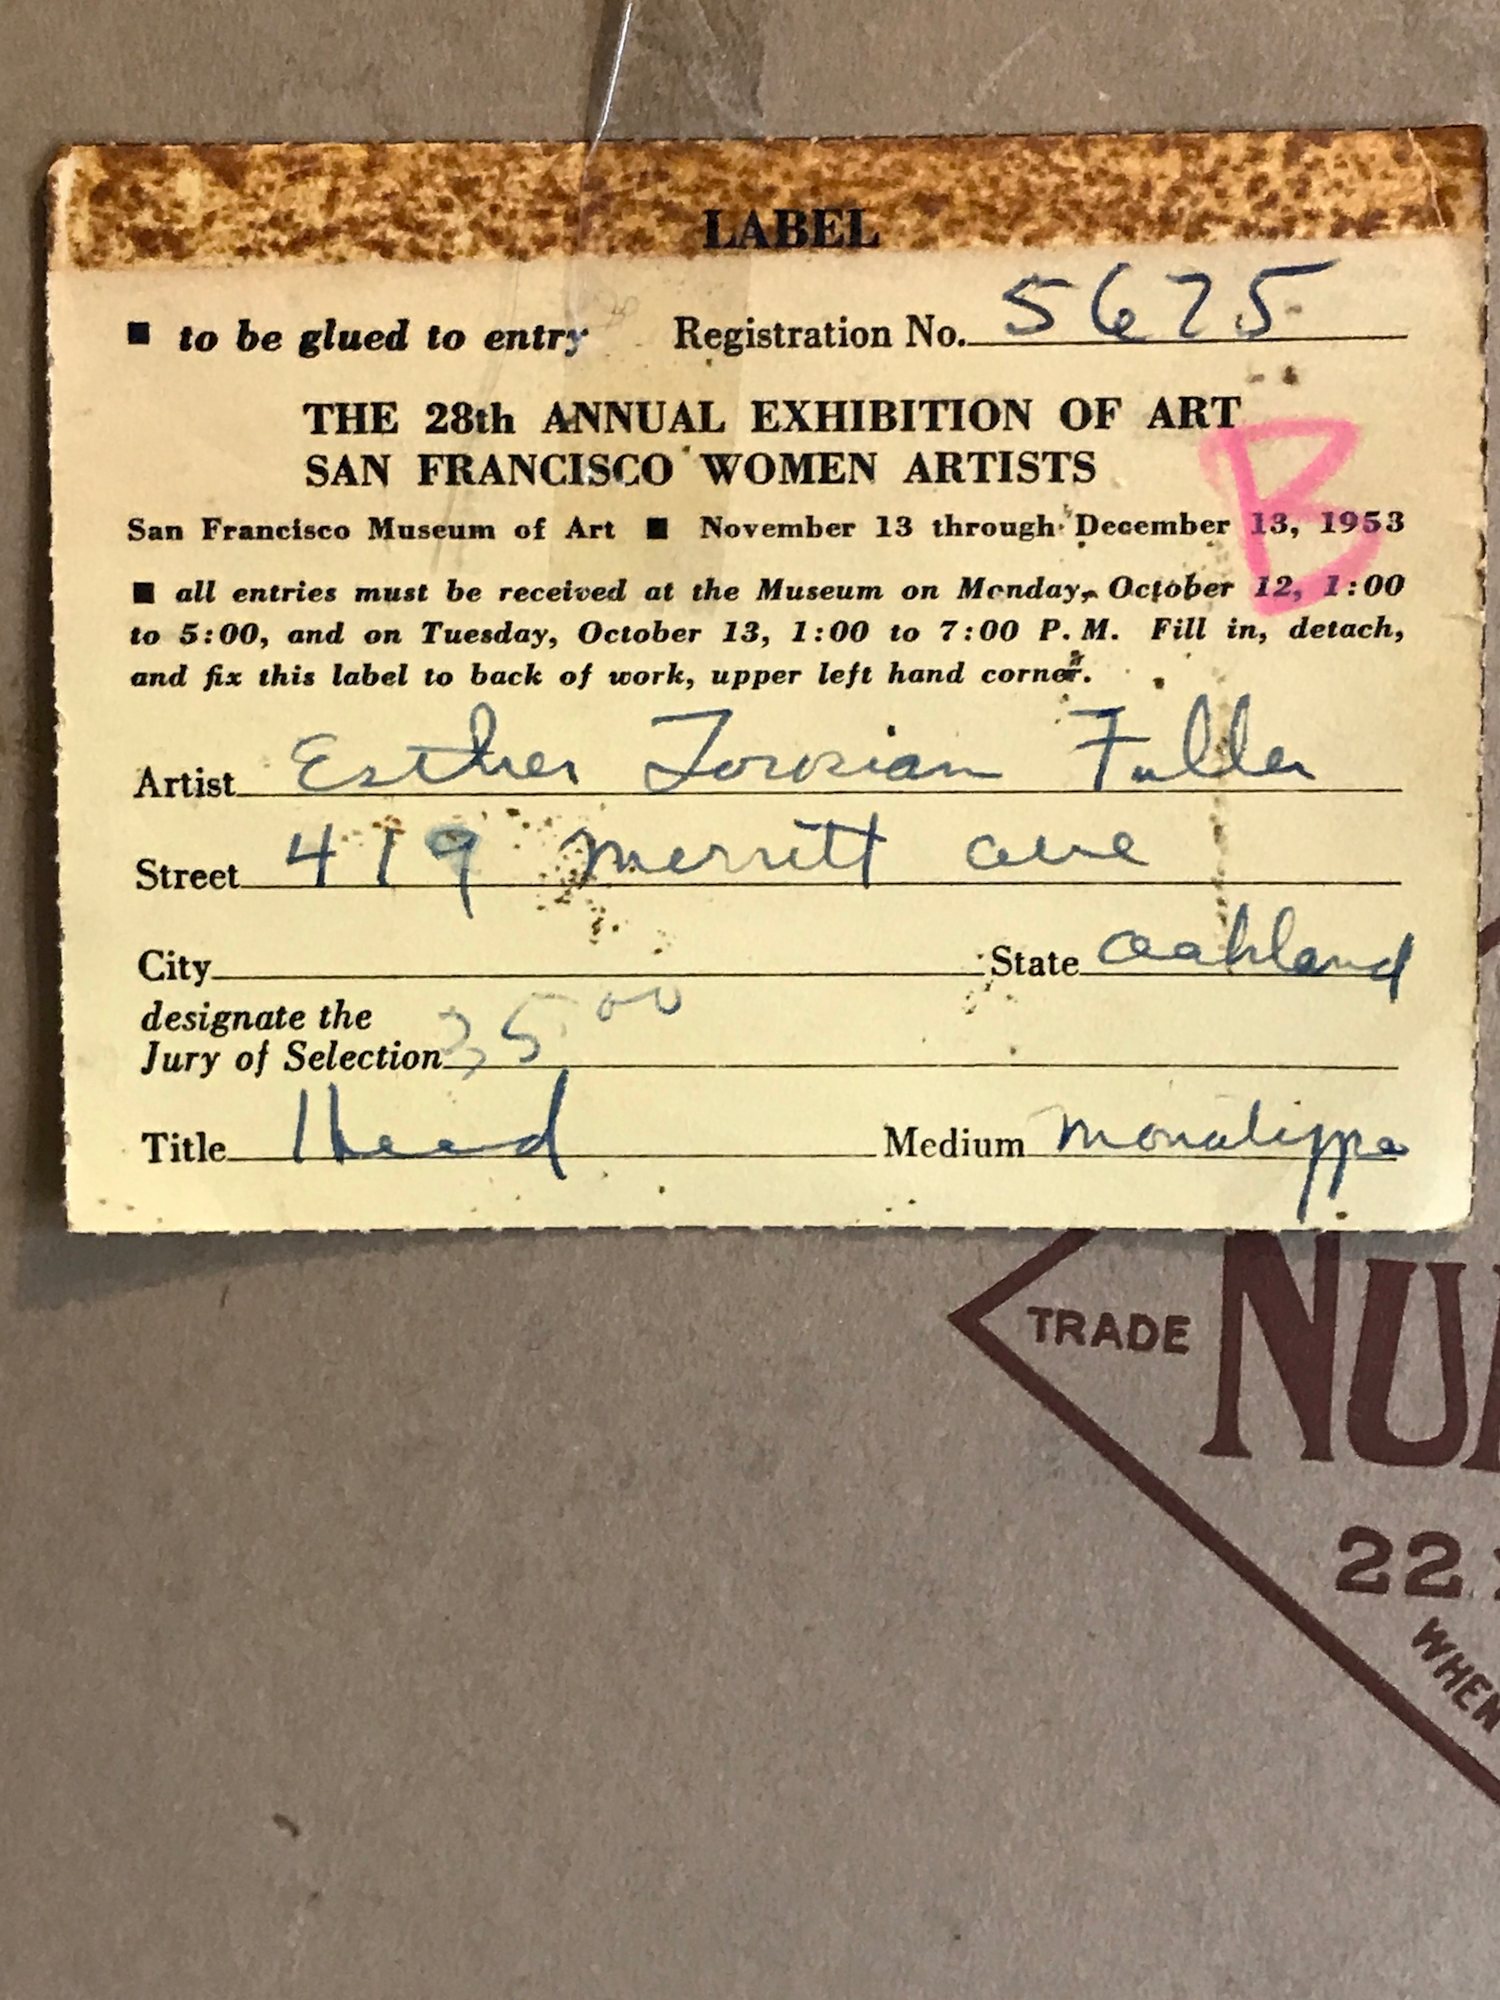 LABEL
■ to be glued to entry Registration No. 5675
THE 28th ANNUAL EXHIBITION OF ART
SAN FRANCISCO WOMEN ARTISTS
B
San Francisco Museum of Art ■ November 13 through December 13, 1953
■ all entries must be received at the Museum on Monday, October 12, 1:00
to 5:00, and on Tuesday, October 13, 1:00 to 7:00 P. M. Fill in, detach,
and fix this label to back of work, upper left hand corner.
Artist Esther Torosian Fuller
Street 419 Merritt ave
City State Oakland
designate the
Jury of Selection 35 00
Title Head Medium monotype
TRADE NU
22
WHEN